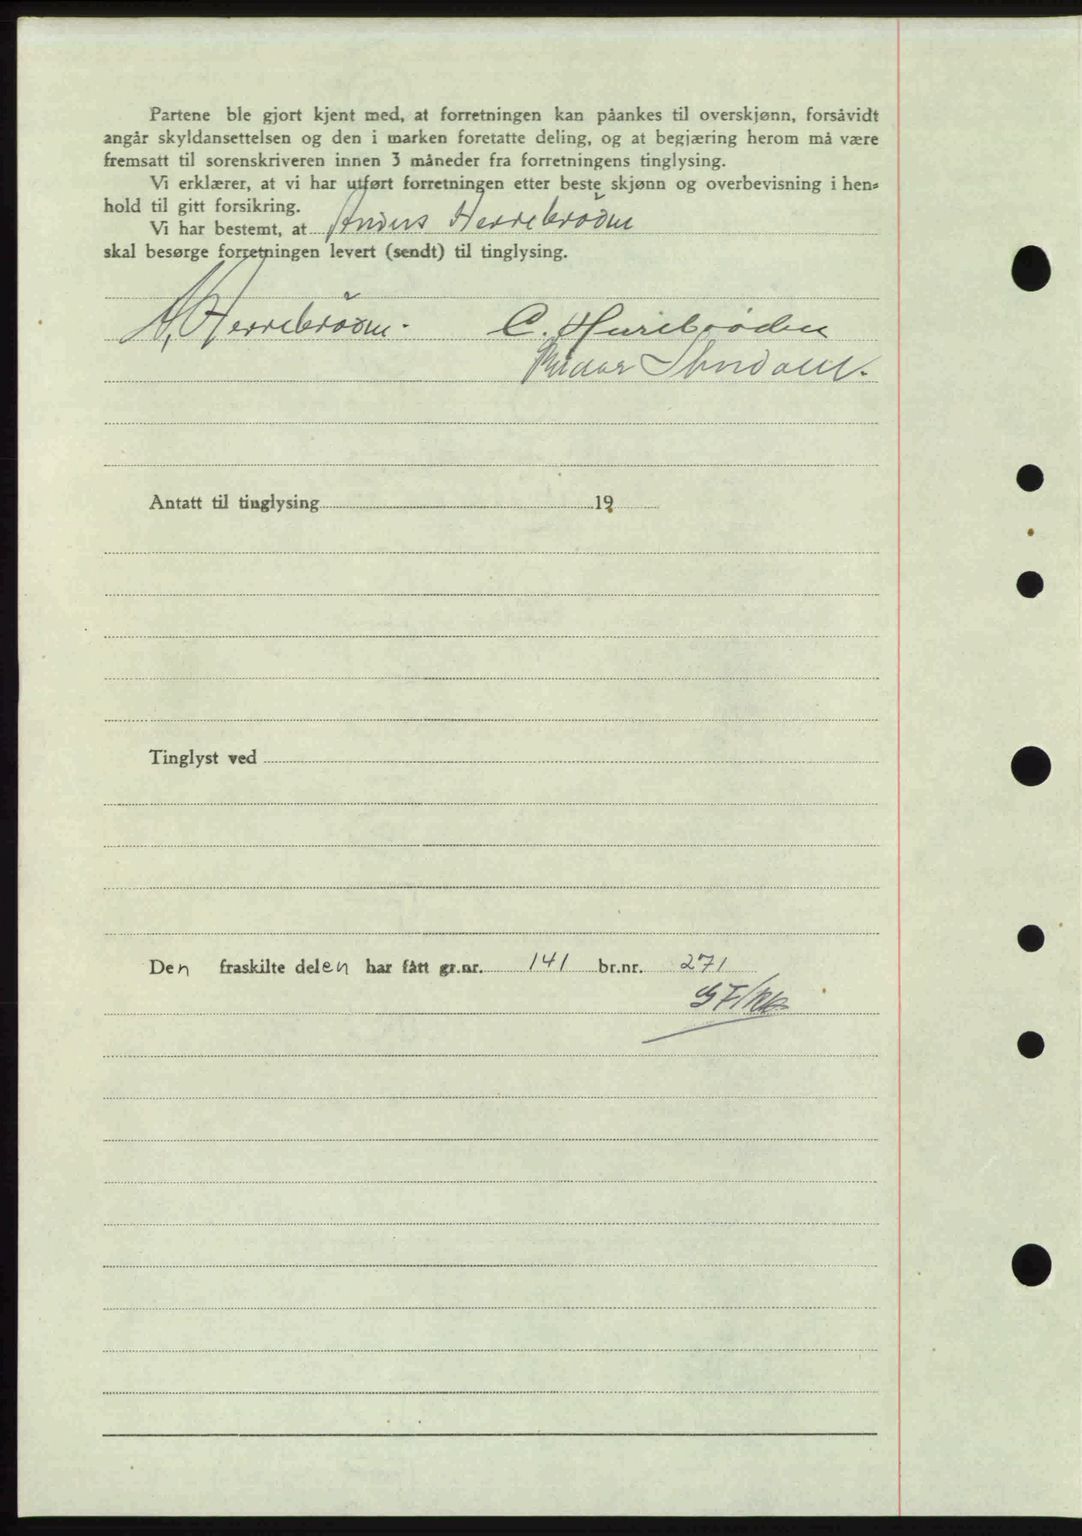 Partene ble gjort kjent med, at forretningen kan påankes til overskjønn, forsåvidt
angår skyldansettelsen og den i marken foretatte deling, og at begjæring herom må være
fremsatt til sorenskriveren innen 3 måneder fra forretningens tinglysing.
Vi erklærer, at vi har utført forretningen etter beste skjønn og overbevisning i hen=
hold til gitt forsikring.
Vi har bestemt, at Anders Herrebrøden
skal besørge forretningen levert (sendt) til tinglysing.
A. Herrebrøden. C. Herrebrøden
Antatt til tinglysing 19
Tinglyst ved
Den fraskilte delen har fått gr.nr. 141 br.nr. 271